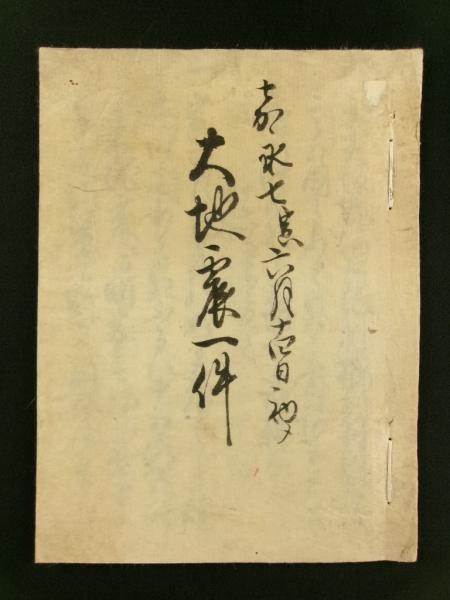 嘉永七寅六月十四日初夕
大地震一件